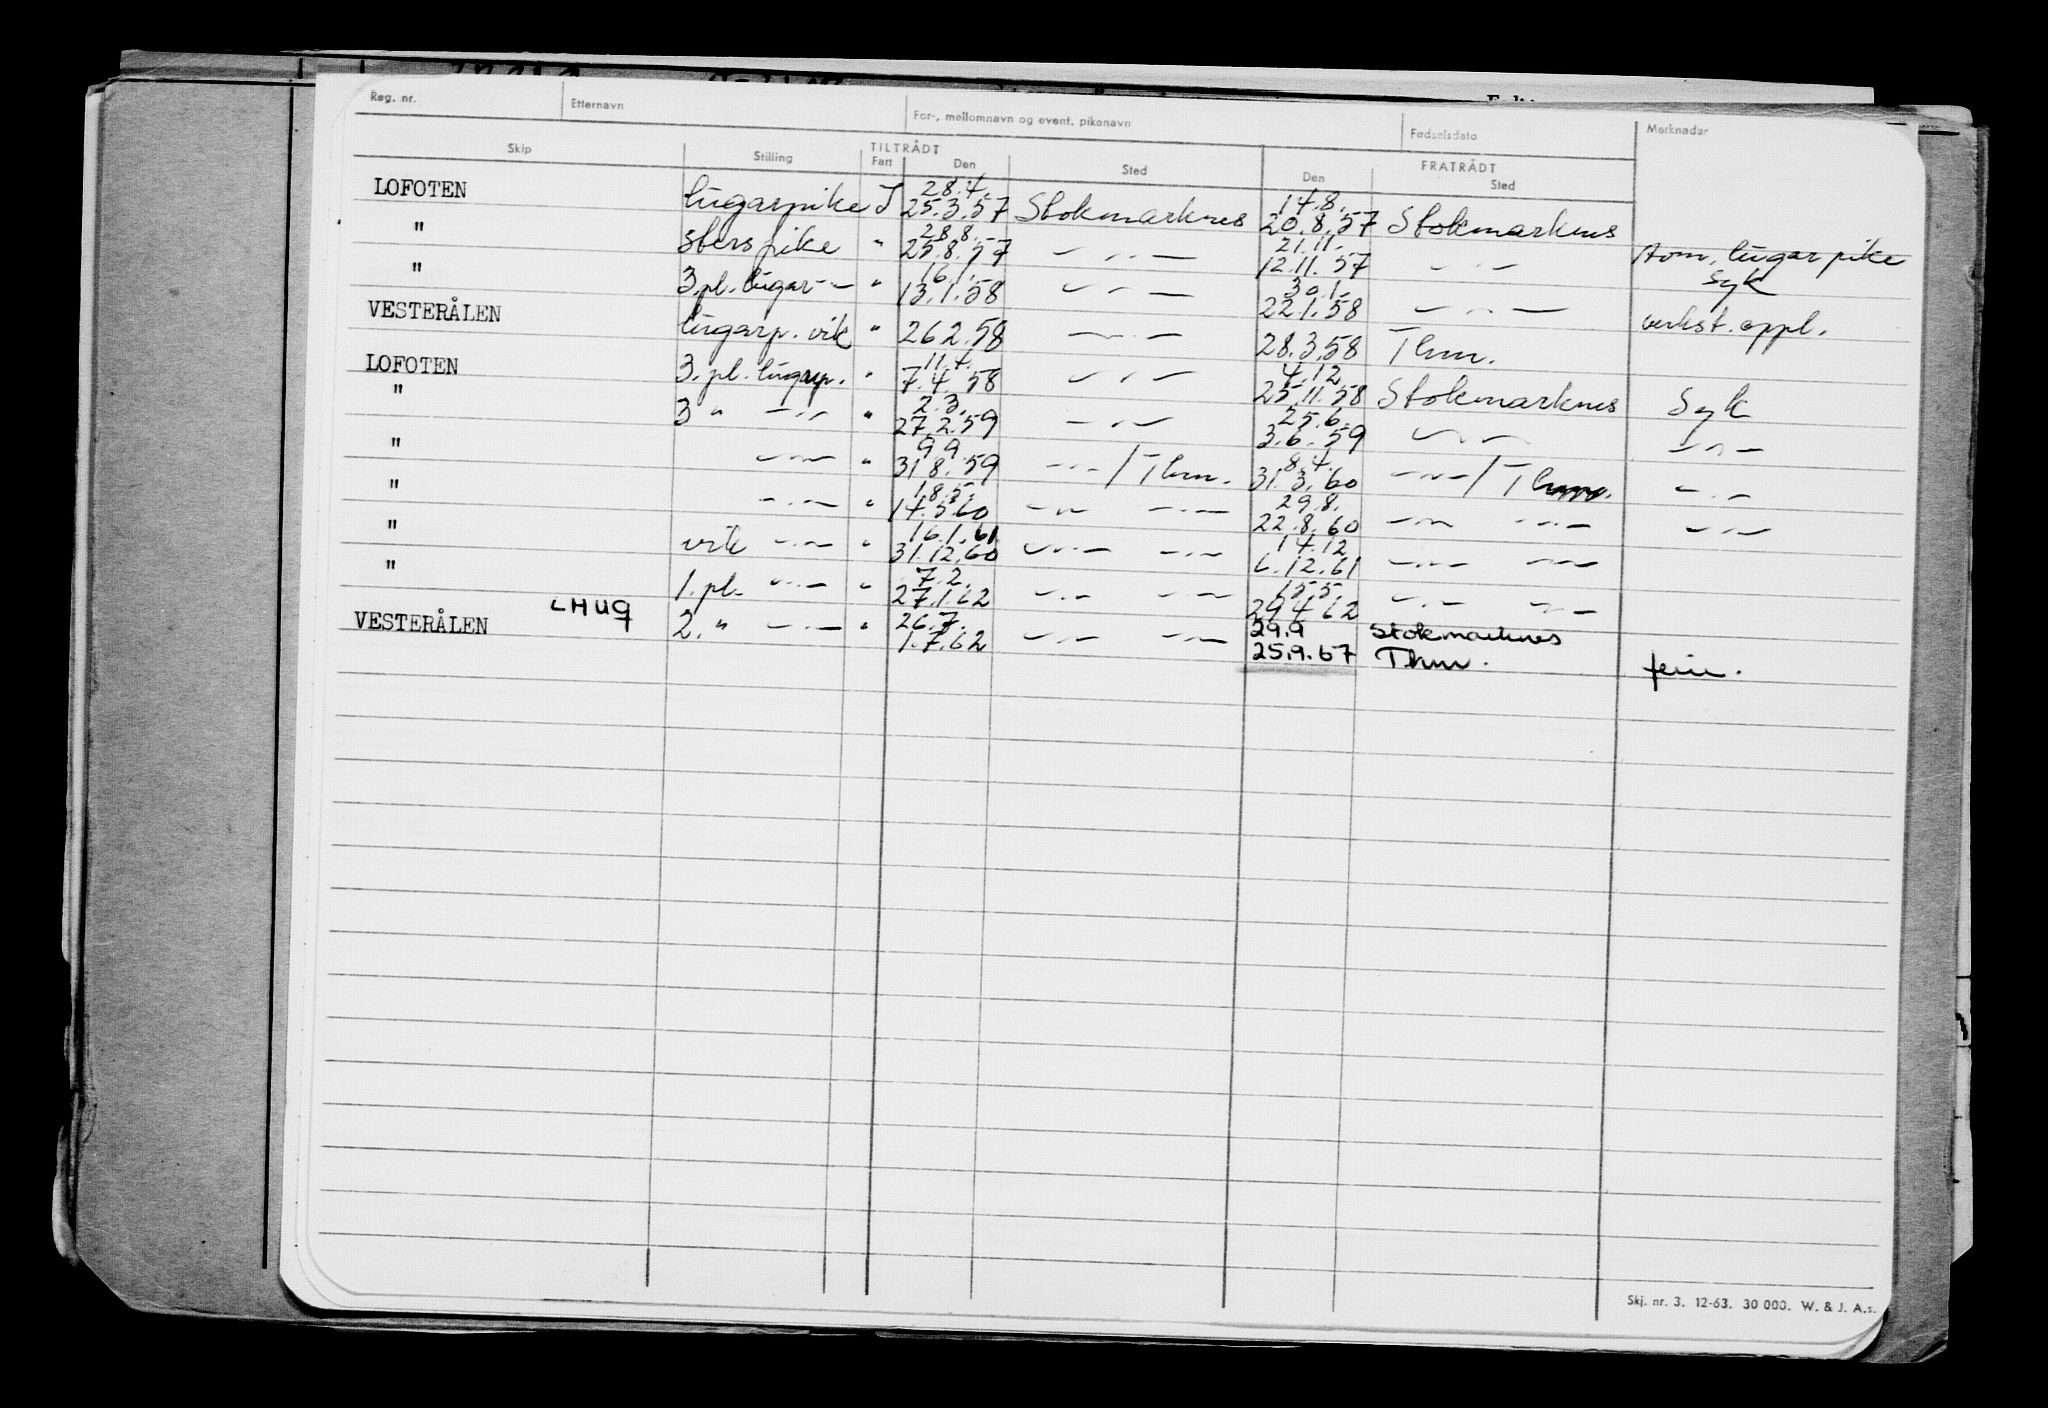 Reg. nr. Etternavn For-, mellomnavn og event. pikenavn Fødselsdato Merknader
TILTRÅDT FRATRÅDT
Skip Stilling Fart Den Sted Den Sted
28.4. 14.8.
LOFOTEN lugarpike I 25.3.57 Stokmarknes 20.8.57 Stokmarknes
28.8. 21.11.
" pike " 25.8.57 — " — 12.11.57 — " — lugarpike
16.1. 30.1. Syk
" 3.pl. lugar- " - " 13.1.58 — " — 22.1.58 — " — verkst. oppl.
VESTERÅLEN lugarp. vik " 26.2.58 — " — 28.3.58 Thm.
11.4. 4.12
LOFOTEN 3. pl. lugarp. " 7.4.58 — " — 25.11.58 Stokmarknes Syk
2.3. 25.6.
" 3 " — " — " 27.2.59 — " — 3.6.59 — " — — " —
9.9. 8.4.
" — " — " 31.8.59 — " — / Thm. 31.3.60 — " — / Thm. — " —
18.5. 29.8.
" — " — " 14.5.60 — " — — " — 22.8.60 — " — — " — — " —
16.1.61 14.12
" vik — " — " 31.12.60 — " — — " — 6.12.61 — " — — " —
7.2. 15.5.
" 1. pl. — " — " 27.1.62 — " — — " — 29.4.62 — " — — " —
LHUQ 26.7. 29.9 Stokmarknes
VESTERÅLEN 2. " — " — " 1.7.62 — " — — " — 25.9.67 Thm. ferie.
Skj. nr. 3. 12-63. 30 000. W. & J. A.s.